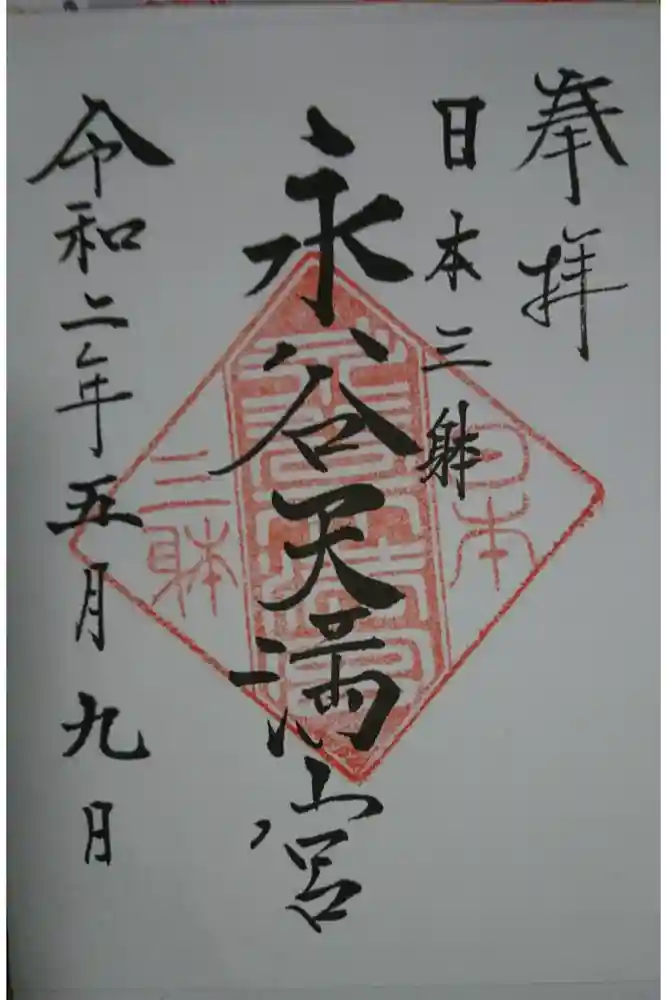 奉拝
日本三躰
永谷天満宮
令和二年五月九日
日本
三躰
永谷天満宮